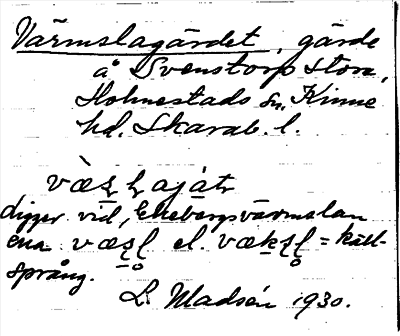 Värmslagärdet, gärde
å Svenstorp Stom,
Holmestads sn, Kinne
hd. Skarab. l.
ligger vid Ekebergsvärmslan
ena el. = käll-
språng.
L. Madsén 1930.